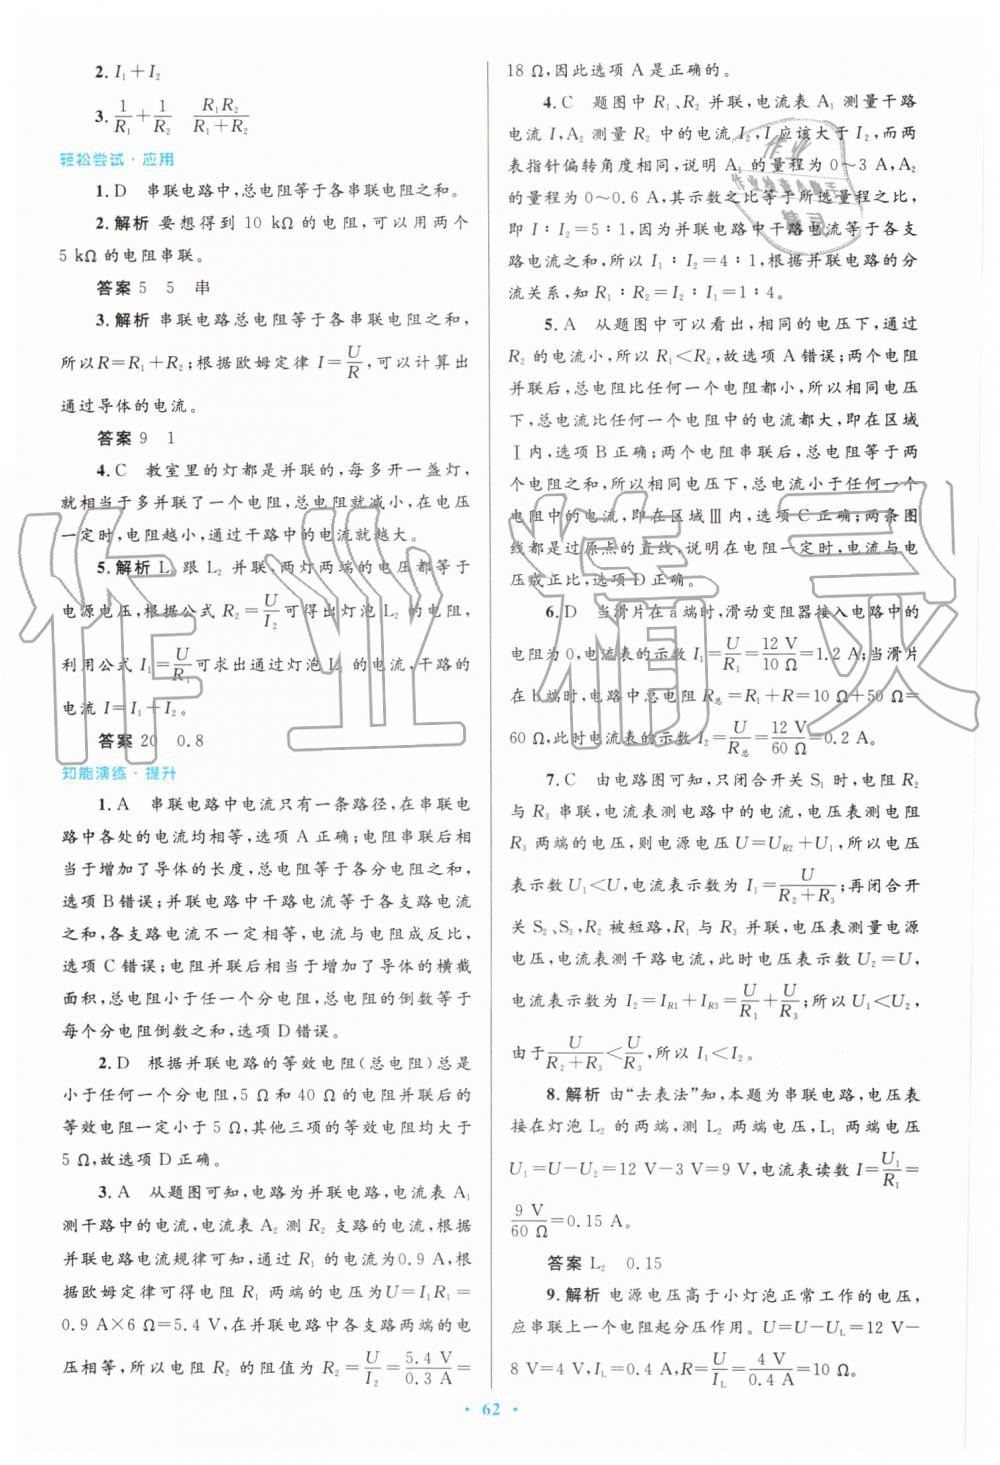 2. I₁+I₂
3. 1/R₁+1/R₂　R₁R₂/(R₁+R₂)
轻松尝试·应用
1. D　串联电路中,总电阻等于各串联电阻之和。
2. 解析 要想得到 10 kΩ 的电阻,可以用两个
5 kΩ 的电阻串联。
答案 5　5　串
3. 解析 串联电路总电阻等于各串联电阻之和,
所以R=R₁+R₂;根据欧姆定律 I=U/R,可以计算出
通过导体的电流。
答案 9　1
4. C　教室里的灯都是并联的,每多开一盏灯,
就相当于多并联了一个电阻,总电阻就减小,在电压
一定时,电阻越小,通过干路中的电流就越大。
5. 解析 L₁ 跟 L₂ 并联,两灯两端的电压都等于
电源电压,根据公式 R₂=U/I₂ 可得出灯泡 L₂ 的电阻,
利用公式 I₁=U/R₁ 可求出通过灯泡 L₁ 的电流,干路的
电流 I=I₁+I₂。
答案 20　0.8
知能演练·提升
1. A　串联电路中电流只有一条路径,在串联电
路中各处的电流均相等,选项 A 正确;电阻串联后相
当于增加了导体的长度,总电阻等于各分电阻之和,
选项 B错误;并联电路中干路电流等于各支路电流
之和,各支路电流不一定相等,电流与电阻成反比,
选项 C 错误;电阻并联后相当于增加了导体的横截
面积,总电阻小于任一个分电阻,总电阻的倒数等于
每个分电阻倒数之和,选项 D 错误。
2. D　根据并联电路的等效电阻(总电阻)总是
小于任何一个分电阻,5 Ω 和 40 Ω 的电阻并联后的
等效电阻一定小于 5 Ω,其他三项的等效电阻均大于
5 Ω,故选项 D 正确。
3. A　从题图可知,电路为并联电路,电流表 A₁
测干路中的电流,电流表 A₂ 测 R₂ 支路的电流,根据
并联电路电流规律可知,通过 R₁ 的电流为0.9 A,根
据欧姆定律可得电阻 R₁ 两端的电压为U=I₁R₁=
0.9 A×6 Ω=5.4 V,在并联电路中各支路两端的电
压相等,所以电阻 R₂ 的阻值为 R₂=U/I₂=5.4 V/0.3 A=
18 Ω,因此选项 A 是正确的。
4. C　题图中 R₁、R₂ 并联,电流表 A₁ 测量干路
电流 I,A₂ 测量 R₂ 中的电流 I₂,I 应该大于 I₂,而两
表指针偏转角度相同,说明 A₁ 的量程为 0～3 A,A₂
的量程为 0～0.6 A,其示数之比等于所选量程之比,
即 I∶I₂=5∶1,因为并联电路中干路电流等于各支
路电流之和,所以 I₁∶I₂=4∶1,根据并联电路的分
流关系,知 R₁∶R₂=I₂∶I₁=1∶4。
5. A　从题图中可以看出,相同的电压下,通过
R₂ 的电流小,所以 R₁＜R₂,故选项 A 错误;两个电阻
并联后,总电阻比任何一个电阻都小,所以相同电压
下,总电流比任何一个电阻中的电流都大,即在区域
Ⅰ内,选项 B 正确;两个电阻串联后,总电阻等于两
个电阻之和,所以相同电压下,总电流小于任何一个
电阻中的电流,即在区域Ⅲ内,选项 C 正确;两条图
线都是过原点的直线,说明在电阻一定时,电流与电
压成正比,选项 D 正确。
6. D　当滑片在 a 端时,滑动变阻器接入电路中的
电阻为 0,电流表的示数 I₁=U/R₁=12 V/10 Ω=1.2 A;当滑片
在 b 端时,电路中总电阻 R总=R₁+R=10 Ω+50 Ω=
60 Ω,此时电流表的示数 I₂=U/R总=12 V/60 Ω=0.2 A。
7. C　由电路图可知,只闭合开关 S₁ 时,电阻 R₂
与 R₃ 串联,电流表测电路中的电流,电压表测电阻
R₃ 两端的电压,则电源电压 U=U_R2+U₁,所以电压
表示数 U₁＜U,电流表示数为 I₁=U/(R₂+R₃);再闭合开
关 S₂、S₃,R₂ 被短路,R₁ 与 R₃ 并联,电压表测量电源
电压,电流表测干路电流,此时电压表示数 U₂=U,
电流表示数为 I₂=I_R1+I_R3=U/R₁+U/R₃;所以 U₁＜U₂,
由于U/(R₂+R₃)＜U/R₃,所以 I₁＜I₂。
8. 解析 由“去表法”知,本题为串联电路,电压表
接在灯泡 L₂ 的两端,测 L₂ 两端电压,L₁ 两端电压
U₁=U-U₂=12 V-3 V=9 V,电流表读数 I=U₁/R₁=
9 V/60 Ω=0.15 A。
答案 L₂　0.15
9. 解析 电源电压高于小灯泡正常工作的电压,
应串联上一个电阻起分压作用。U=U-U_L=12 V-
8 V=4 V,I_L=0.4 A,R=U/I_L=4 V/0.4 A=10 Ω。
· 62 ·